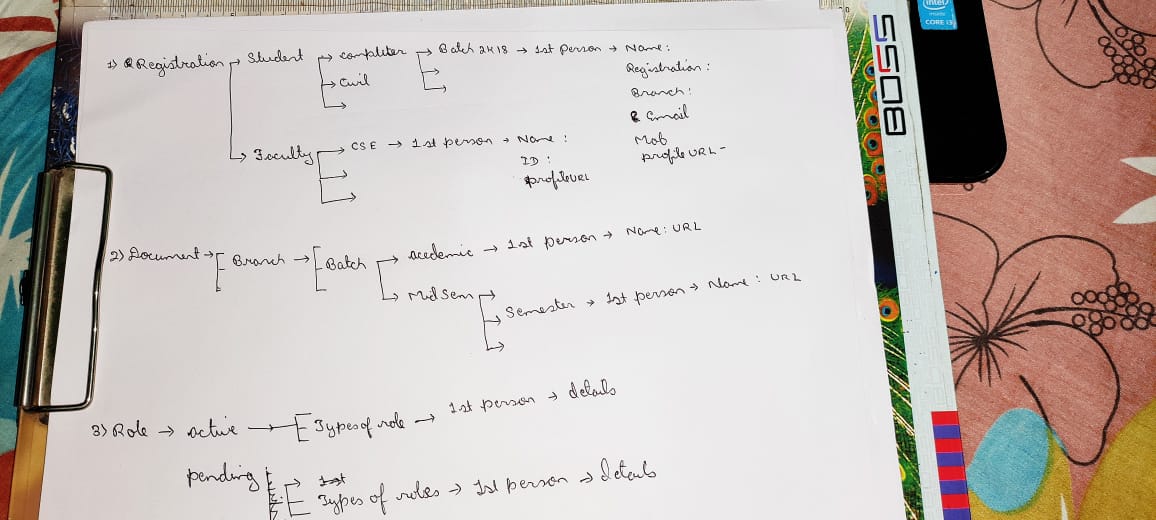 1) Registration → Student → computer → Batch 2K18 → 1st Person → Name:
Registration:
→ Civil
Branch:
Email
Mob
profile URL -
→ Faculty → CSE → 1st person → Name:
ID:
profileURL
2) Document → Branch → Batch → acedemic → 1st person → Name: URL
→ Midsem → Semester → 1st person → Name: URL
3) Role → active → Types of role → 1st person → details
pending → 1st
Types of roles → 1st person → details
intel
inside
CORE i3
BOSS